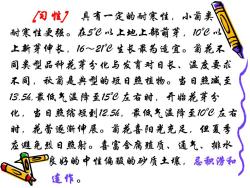 [习性] 具有一定的耐寒性，小菊类
耐寒性更强。在5℃以上地上部萌芽，10℃以
上新芽伸长，16～21℃生长最为适宜。菊花不
同类型品种花芽分化与发育对日长、温度要求
不同，秋菊是典型的短日照植物。当日照减至
13.5h，最低气温降至15℃左右时，开始花芽分
化，当日照缩短到12.5h，最低气温降至10℃左右
时，花蕾逐渐伸展。菊花喜阳光充足，但夏季
应避免烈日照射。喜富含腐殖质、通气、排水
良好的中性偏酸的砂质土壤，忌积涝和
连作。